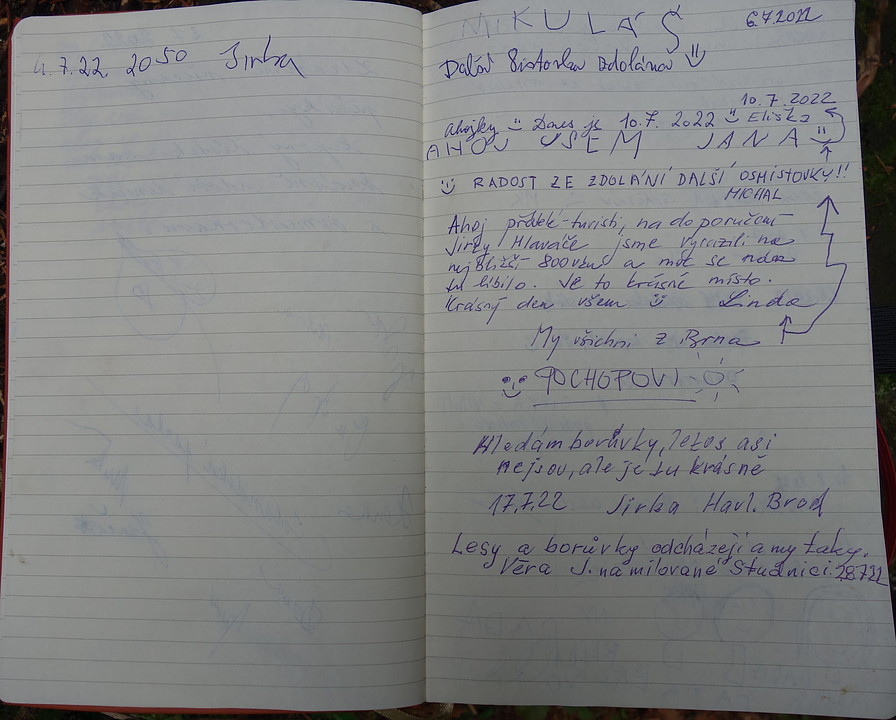 4.7.22. 20 50 Jirka
MIKULÁŠ
6.7.2022
Další 8istovka zdolána
10.7.2022
Ahojky Dnes je 10.7.2022 Eliška
AHOJ JSEM JANA
RADOST ZE ZDOLÁNÍ DALŠÍ OSMISTOVKY!!
MICHAL
Ahoj přátelé-turisti, na doporučení
Jirky Hlaváče jsme vyrazili na
nejbližší 800vku a moc se nám
tu líbilo. Je to krásné místo.
Krásný den všem Linda
My všichni z Brna
POCHOPOVI
Hledám borůvky, letos asi
nejsou, ale je tu krásně
17.7.22 Jirka Havl. Brod
Lesy a borůvky odcházejí a my taky.
Věra J. na milované Studnici. 28722